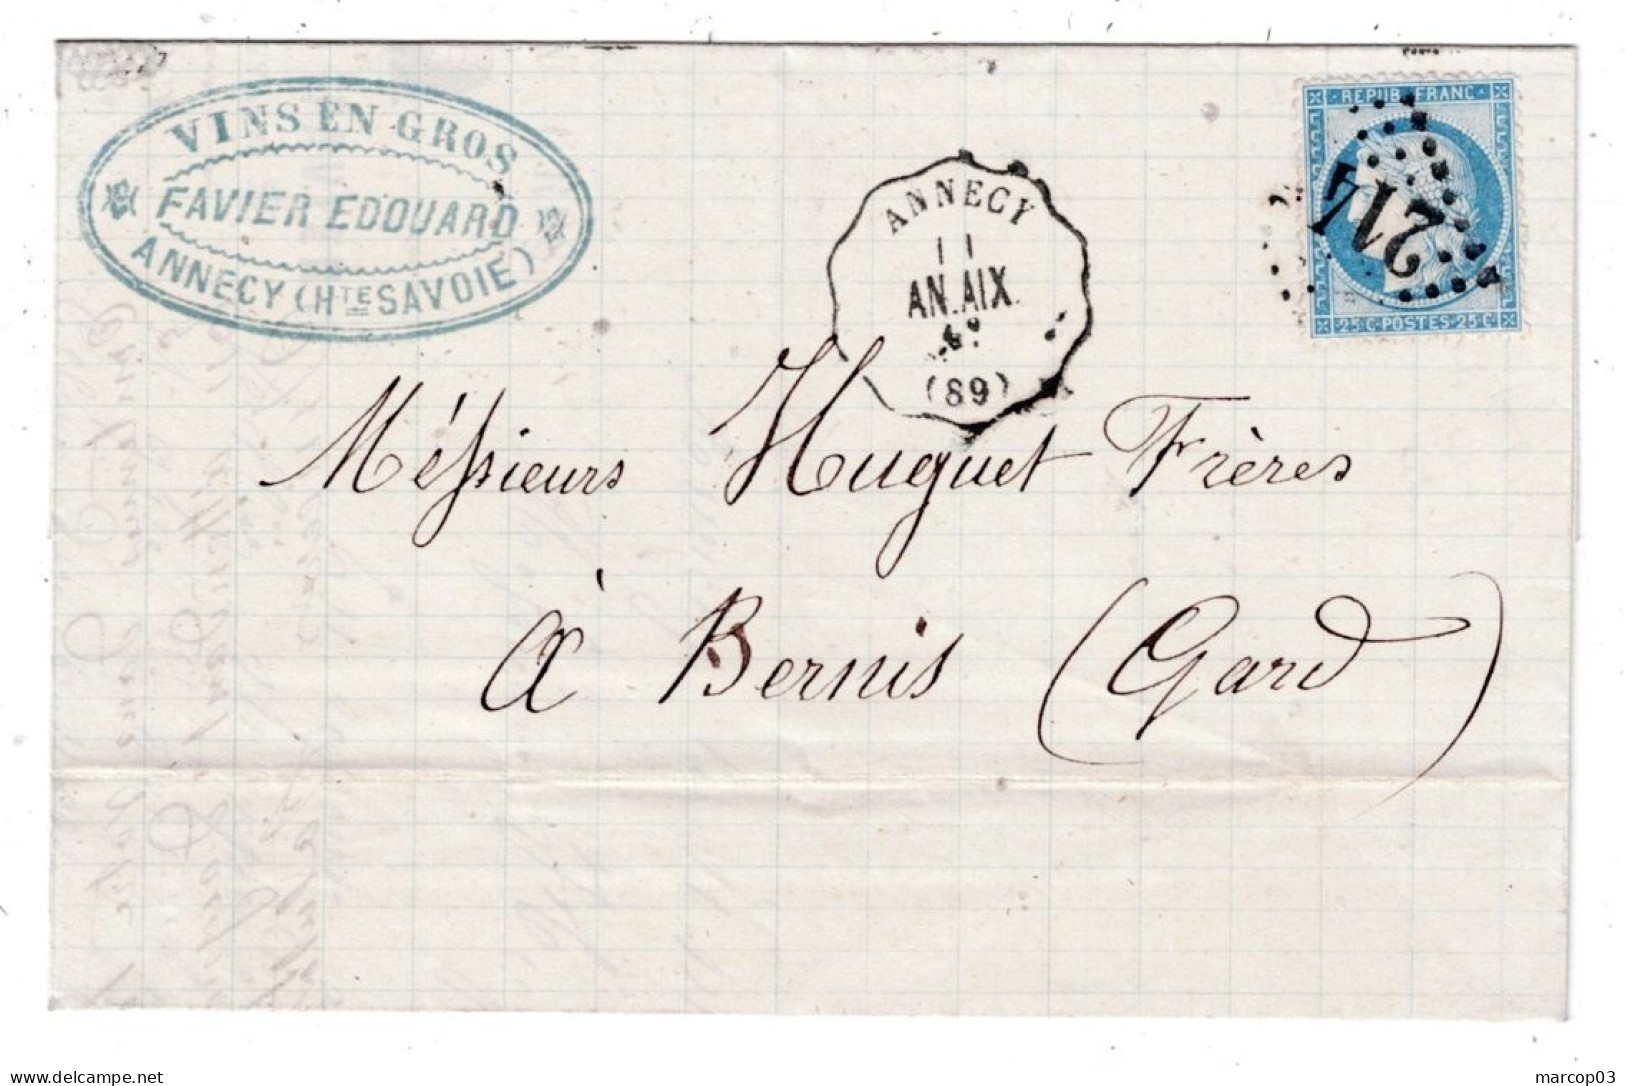 VINS EN GROS
FAVIER EDOUARD
ANNECY (HTE SAVOIE)
ANNECY
11
AN.AIX.
(89)
REPUB. FRANC.
2174
25 C. POSTES 25 C.
Méssieurs Huguet Frères
à Bernis (Gard)
marcop03